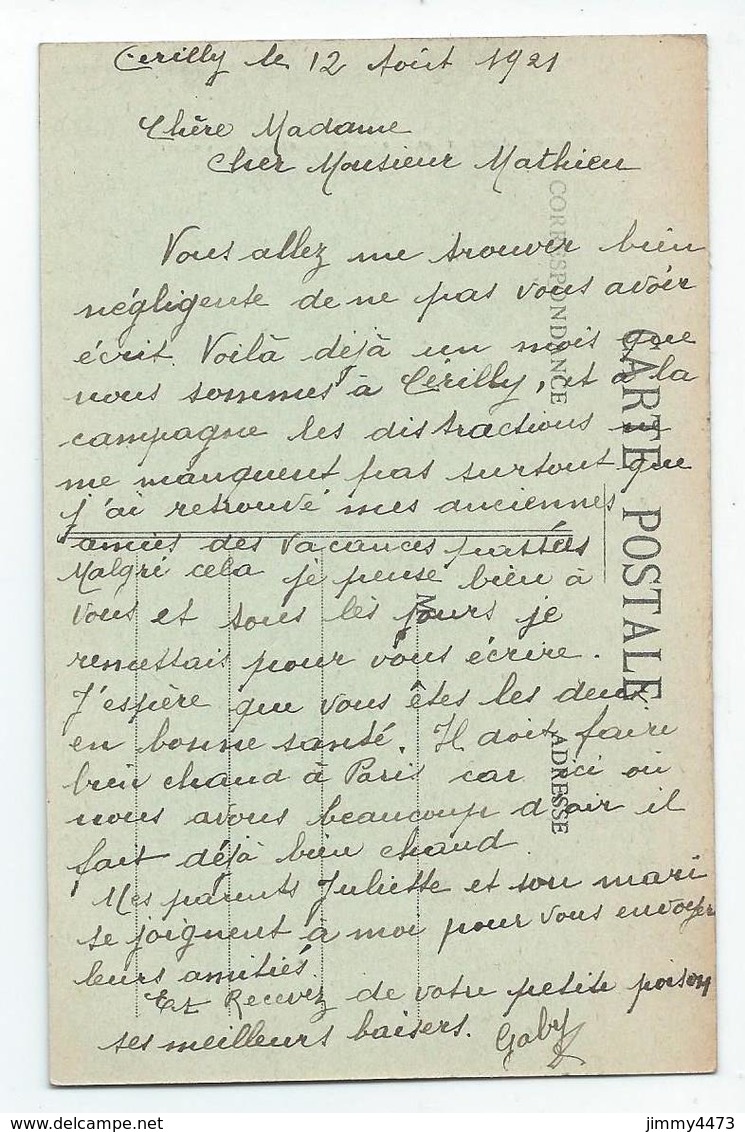 Cerilly le 12 Août 1921
Chère Madame
Cher Monsieur Mathieu
Vous allez me trouver bien
négligente de ne pas vous avoir
écrit. Voilà déjà un mois que
nous sommes à Cerilly, et à la
campagne les distractions ne
me manquent pas surtout que
j'ai retrouvé mes anciennes
amies des vacances passées
Malgré cela je pense bien à
vous et tous les jours je
remettais pour vous écrire.
J'espère que vous êtes les deux
en bonne santé. Il doit faire
bien chaud à Paris car ici où
nous avons beaucoup d'air il
fait déjà bien chaud.
Mes parents Juliette et son mari
se joignent à moi pour vous envoyer
leurs amitiés.
Et Recevez de votre petite poison
ses meilleurs baisers. Gaby
CARTE POSTALE
CORRESPONDANCE
ADRESSE
M
jimmy4473